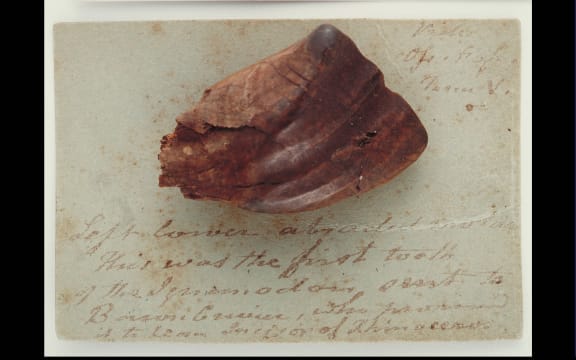 Left lower abraded
This was the first tooth
of the Iguanodon sent to
Baron Cuvier, who pronounced
it to be an Incisor of Rhinoceros.